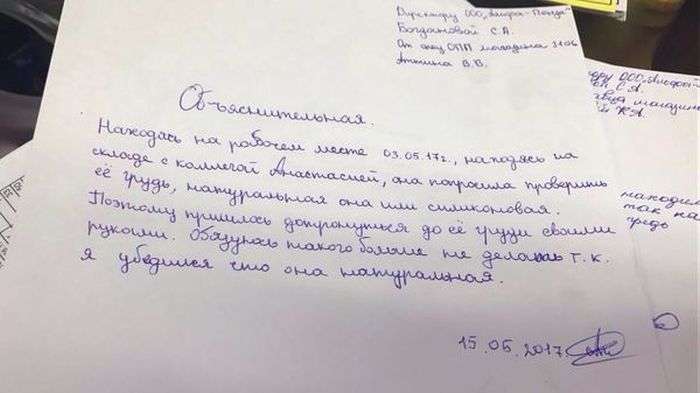 Директору ООО „Альфа-Пенза"
Богдановой С.А.
От спец ОПП магазина 3106
Аткина В.В.
Объяснительная.
Находясь на рабочем месте 03.05.17г., находясь на
складе с коллегой Анастасией, она попросила проверить
её грудь, натуральная она или силиконовая.
Поэтому пришлось дотронуться до её груди своими
руками. Обязуюсь такого больше не делать т.к.
я убедился что она натуральная.
15.05.2017
ООО „Альфа-
С А
магазин
находи
так на
грудь